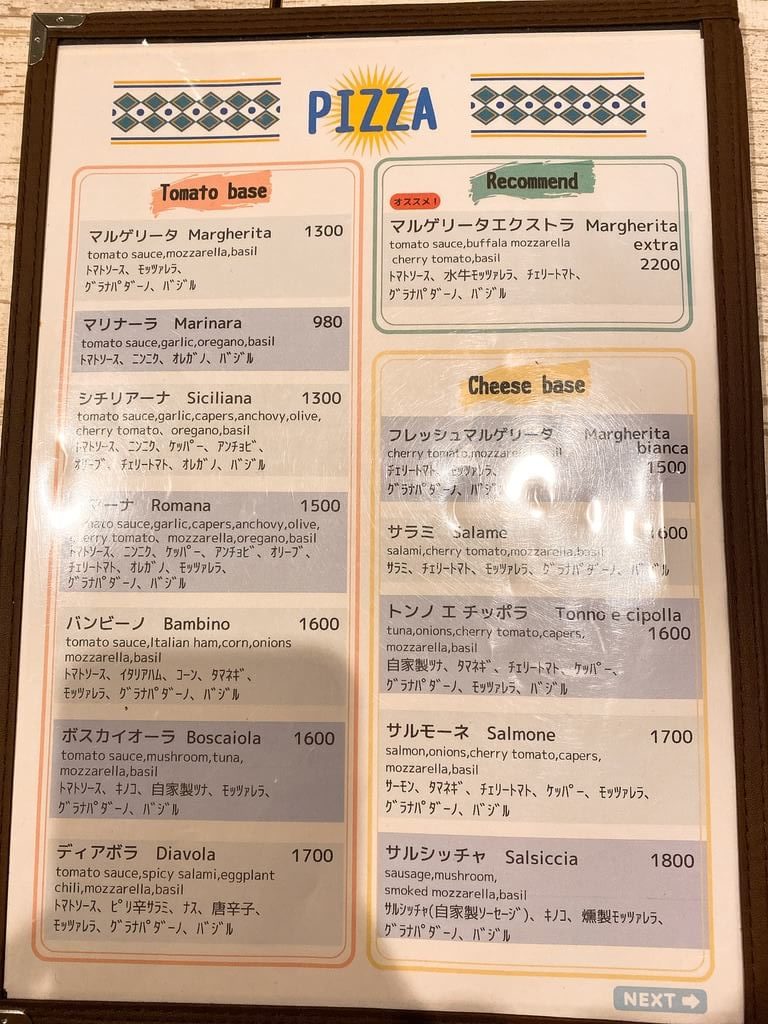 PIZZA
Tomato base
マルゲリータ Margherita 1300
tomato sauce,mozzarella,basil
ﾄﾏﾄｿｰｽ、ﾓｯﾂｧﾚﾗ、
ｸﾞﾗﾅﾊﾟﾀﾞｰﾉ、ﾊﾞｼﾞﾙ
マリナーラ Marinara 980
tomato sauce,garlic,oregano,basil
ﾄﾏﾄｿｰｽ、ﾆﾝﾆｸ、ｵﾚｶﾞﾉ、ﾊﾞｼﾞﾙ
シチリアーナ Siciliana 1300
tomato sauce,garlic,capers,anchovy,olive,
cherry tomato、oregano,basil
ﾄﾏﾄｿｰｽ、ﾆﾝﾆｸ、ｹｯﾊﾟｰ、ｱﾝﾁｮﾋﾞ、
ｵﾘｰﾌﾞ、ﾁｪﾘｰﾄﾏﾄ、ｵﾚｶﾞﾉ、ﾊﾞｼﾞﾙ
マーナ Romana 1500
tomato sauce,garlic,capers,anchovy,olive,
cherry tomato、mozzarella,oregano,basil
ﾄﾏﾄｿｰｽ、ﾆﾝﾆｸ、ｹｯﾊﾟｰ、ｱﾝﾁｮﾋﾞ、ｵﾘｰﾌﾞ、
ﾁｪﾘｰﾄﾏﾄ、ｵﾚｶﾞﾉ、ﾓｯﾂｧﾚﾗ、
ｸﾞﾗﾅﾊﾟﾀﾞｰﾉ、ﾊﾞｼﾞﾙ
バンビーノ Bambino 1600
tomato sauce,Italian ham,corn,onions
mozzarella,basil
ﾄﾏﾄｿｰｽ、ｲﾀﾘｱﾊﾑ、ｺｰﾝ、ﾀﾏﾈｷﾞ、
ﾓｯﾂｧﾚﾗ、ｸﾞﾗﾅﾊﾟﾀﾞｰﾉ、ﾊﾞｼﾞﾙ
ボスカイオーラ Boscaiola 1600
tomato sauce,mushroom,tuna,
mozzarella,basil
ﾄﾏﾄｿｰｽ、ｷﾉｺ、自家製ﾂﾅ、ﾓｯﾂｧﾚﾗ、
ｸﾞﾗﾅﾊﾟﾀﾞｰﾉ、ﾊﾞｼﾞﾙ
ディアボラ Diavola 1700
tomato sauce,spicy salami,eggplant
chili,mozzarella,basil
ﾄﾏﾄｿｰｽ、ﾋﾟﾘ辛ｻﾗﾐ、ﾅｽ、唐辛子、
ﾓｯﾂｧﾚﾗ、ｸﾞﾗﾅﾊﾟﾀﾞｰﾉ、ﾊﾞｼﾞﾙ
Recommend
オススメ！
マルゲリータエクストラ Margherita
tomato sauce,buffala mozzarella extra
cherry tomato,basil 2200
ﾄﾏﾄｿｰｽ、水牛ﾓｯﾂｧﾚﾗ、ﾁｪﾘｰﾄﾏﾄ、
ｸﾞﾗﾅﾊﾟﾀﾞｰﾉ、ﾊﾞｼﾞﾙ
Cheese base
フレッシュマルゲリータ Margherita
cherry tomato,mozzarella,basil bianca
ﾁｪﾘｰﾄﾏﾄ、ﾓｯﾂｧﾚﾗ、 1500
ｸﾞﾗﾅﾊﾟﾀﾞｰﾉ、ﾊﾞｼﾞﾙ
サラミ Salame 1600
salami,cherry tomato,mozzarella,basil
ｻﾗﾐ、ﾁｪﾘｰﾄﾏﾄ、ﾓｯﾂｧﾚﾗ、ｸﾞﾗﾅﾊﾟﾀﾞｰﾉ、ﾊﾞｼﾞﾙ
トンノ エ チッポラ Tonno e cipolla
tuna,onions,cherry tomato,capers, 1600
mozzarella,basil
自家製ﾂﾅ、ﾀﾏﾈｷﾞ、ﾁｪﾘｰﾄﾏﾄ、ｹｯﾊﾟｰ、
ｸﾞﾗﾅﾊﾟﾀﾞｰﾉ、ﾓｯﾂｧﾚﾗ、ﾊﾞｼﾞﾙ
サルモーネ Salmone 1700
salmon,onions,cherry tomato,capers,
mozzarella,basil
ｻｰﾓﾝ、ﾀﾏﾈｷﾞ、ﾁｪﾘｰﾄﾏﾄ、ｹｯﾊﾟｰ、ﾓｯﾂｧﾚﾗ、
ｸﾞﾗﾅﾊﾟﾀﾞｰﾉ、ﾊﾞｼﾞﾙ
サルシッチャ Salsiccia 1800
sausage,mushroom,
smoked mozzarella,basil
ｻﾙｼｯﾁｬ(自家製ｿｰｾｰｼﾞ)、ｷﾉｺ、燻製ﾓｯﾂｧﾚﾗ、
ｸﾞﾗﾅﾊﾟﾀﾞｰﾉ、ﾊﾞｼﾞﾙ
NEXT